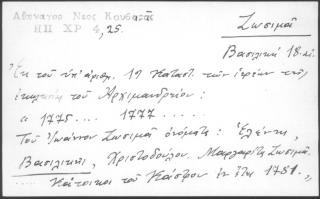 Αθηναγορ Νεος Κουβαράς
ΗΠ ΧΡ 4, 25.
Ζωσιμᾶ
Βασιλική 18 αἰ.
Ἐκ τοῦ ὑπ' ἀριθμ. 19 Καταστ. τῶν ἱερέων τῆς
τοῦ Ἀρχιμανδρείου:
α 1775.... 1777.....
Τοῦ Ἰωάννου Ζωσιμᾶ ὀνόματα: Ἑλένης,
Βασιλικῆς, Χριστοδούλου, Μαργαρίτη Ζωσιμᾶ.
..... Κάτοικοι τοῦ Κάστρου ἐν ἔτει 1781.,,